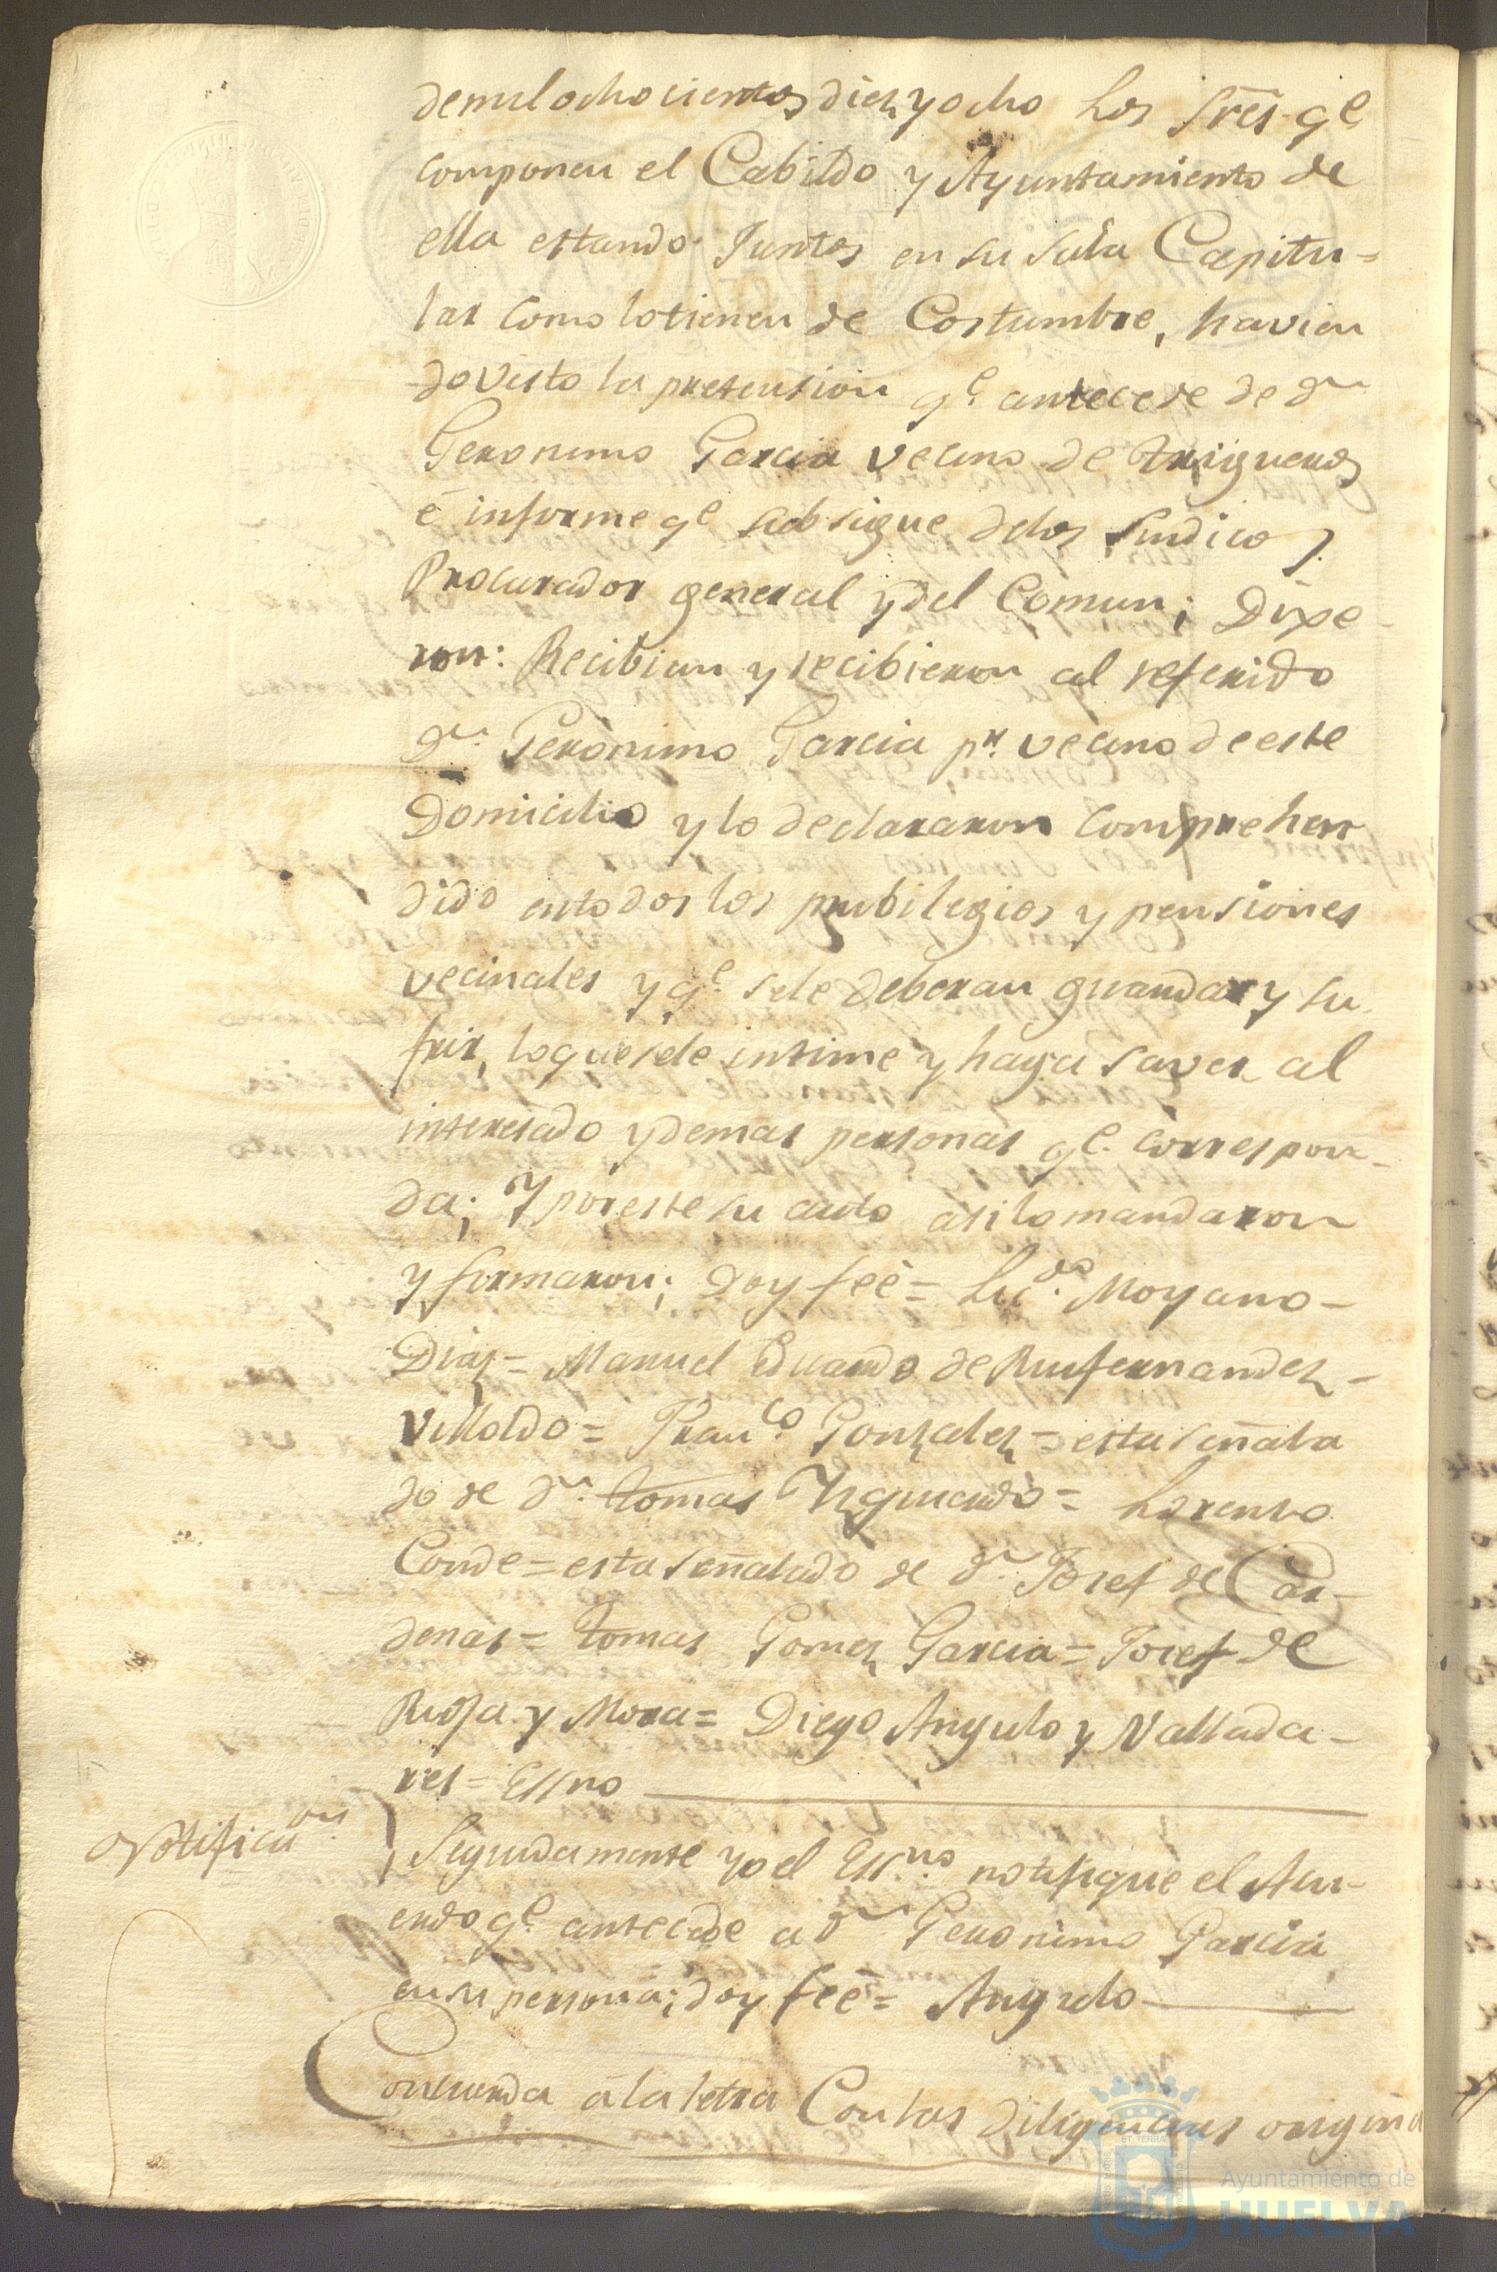 demil ochocientos diez y ocho Los Sres. qe.
componen el Cabildo y Ayuntamiento de
ella estando Juntos en su sala Capitu-
lar como lo tienen de Costumbre, havien
do visto la pretension qe. antecede de Dn
Geronimo Garcia vecino de trigueros
é informe qe subsigue delos Sindico y
Procurador general y del Comun; Dixe-
ron: Recibian y recibieron al referido
Dn. Geronimo Garcia pr. vecino de este
Domicilio y lo declararon comprehen
dido en todos los pribilegios y pensiones
vecinales y qe. sele deberan guardar y su
frir, lo que sele intime y haga saver al
interesado y demas personas qe. correspon-
da; Y por este su auto asi lo mandaron
y firmaron; Doy feé = Licdo. Moyano =
Diaz = Manuel Eduardo de Ruifernandez =
Villoldo = Franco. Gonzalez = esta señala
do de Dn. tomas Yzquierdo = Lorenzo
Conde = esta señalado de Dn. Josef de Car-
denas = tomas Gomez Garcia = Josef de
Rioja y Mora = Diego Angulo y Vallada-
res = Essno
Notificaon
Seguidamente yo el Essno. notifique el Acu-
erdo qe. antecede a Dn Geronimo Garcia
en su persona; doy feé = Angulo
Concuerda á la letra Con las diligencias origina
Ayuntamiento de
HUELVA